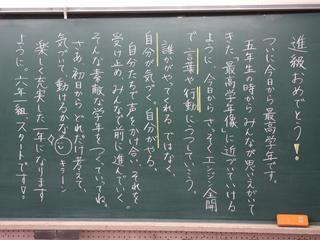 進級おめでとう!
ついに今日から最高学年です。
五年生の時からみんなが思いえがいて
きた「最高学年像」に近づいていける
ように、今日からさっそくエンジン全開
で言葉や行動にうつしていこう。
誰かがやってくれる ではなく、
自分が気づく。自分がやる。
自分たちで声をかけ合い、それを
受け止め、みんなで前に進んでいく。
そんな素敵な学年をつくっていてね。
さあ、初日からどれだけ考えて、
気づいて、動けるかな キラーン
楽しく充実した一年になります
ように。六年一組 スタートです!